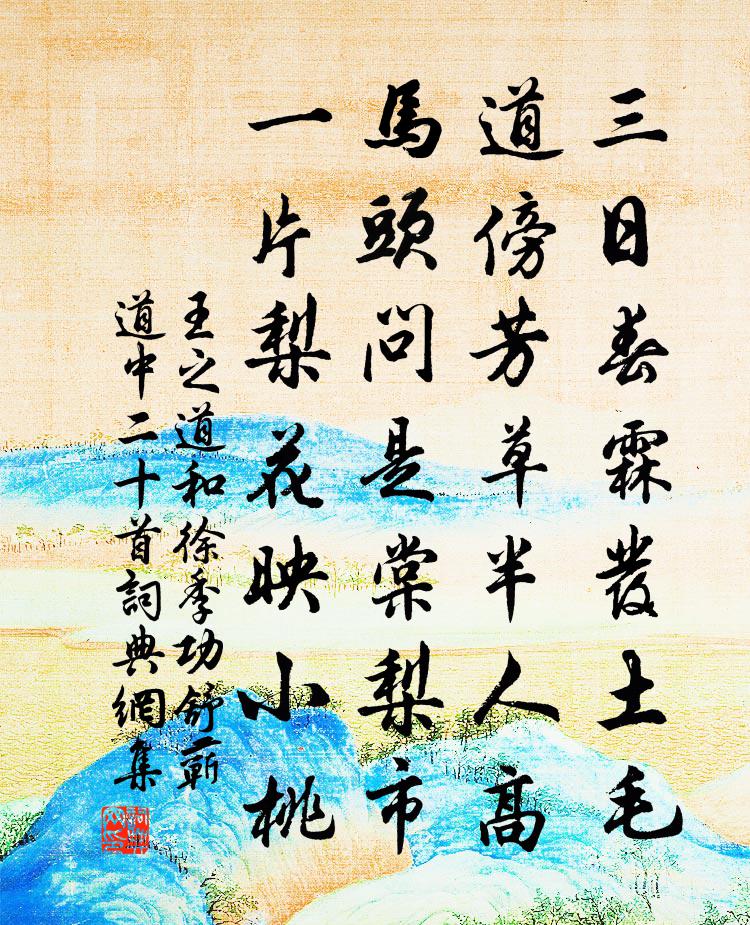 三日春霖發土毛
道傍芳草半人高
馬頭問是棠梨市
一片梨花映小桃
王之道和徐季功舒蘄
道中二十首詞典網集